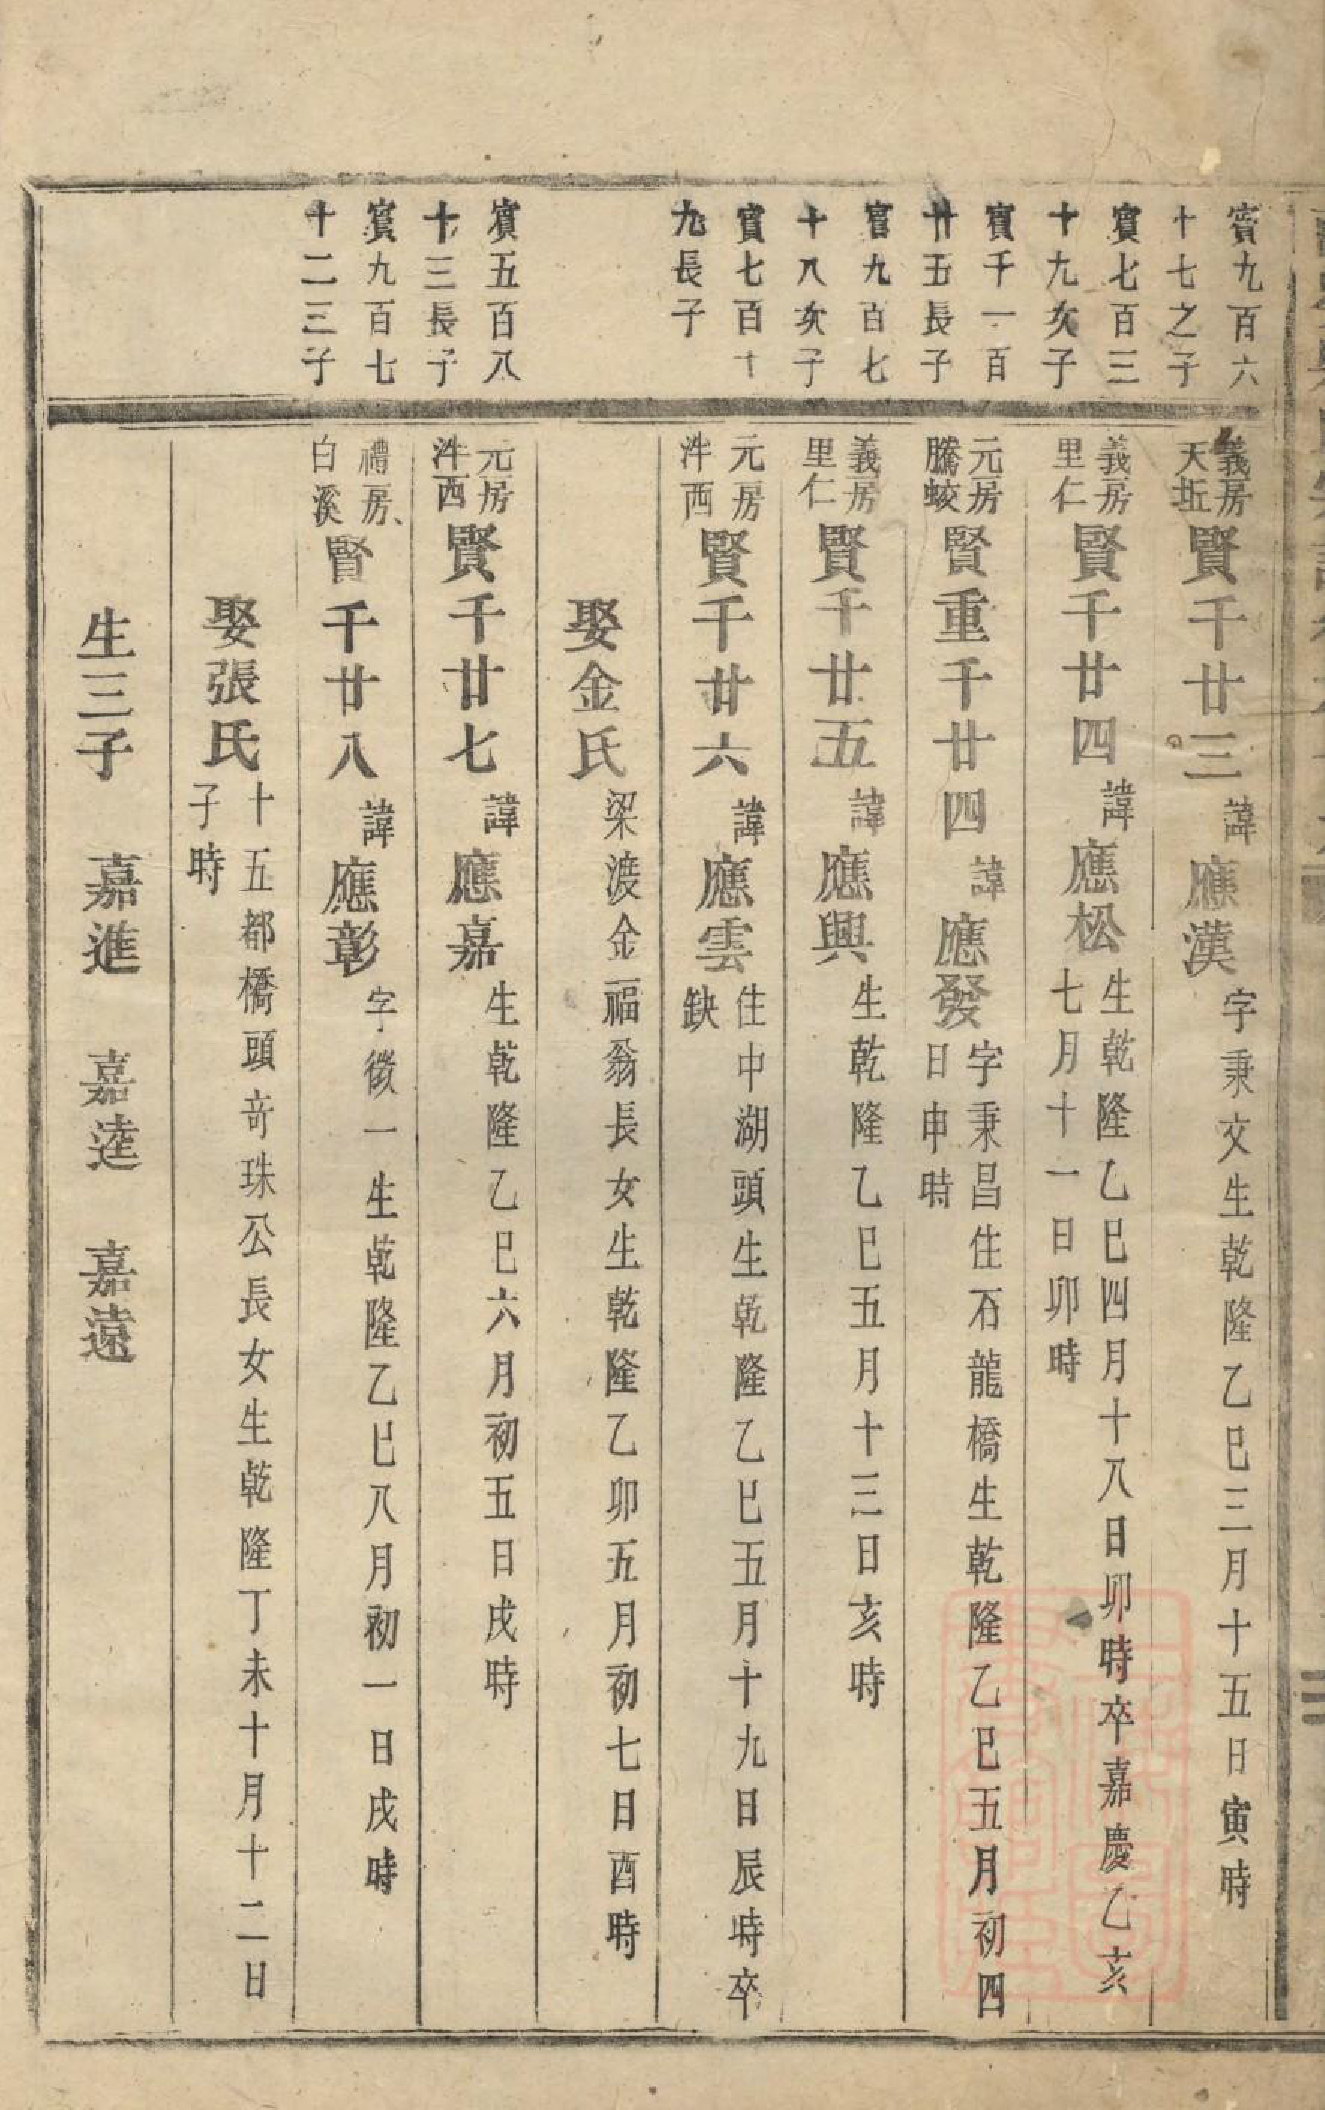 賓九百六
十七之子
義房
天坵
賢千廿三
諱
應漢
字秉文生乾隆乙巳三月十五日寅時
賓七百三
十九次子
義房
里仁
賢千廿四
諱
應松
生乾隆乙巳四月十八日卯時卒嘉慶乙亥
七月十一日卯時
賓千一百
廿五長子
元房
騰蛟
賢重千廿四
諱
應發
字秉昌住石龍橋生乾隆乙巳五月初四
日申時
賓九百七
十八次子
義房
里仁
賢千廿五
諱
應興
生乾隆乙巳五月十三日亥時
賓七百十
九長子
元房
泮西
賢千廿六
諱
應雲
住中湖頭生乾隆乙巳五月十九日辰時卒
缺
娶金氏
梁渡金福翁長女生乾隆乙卯五月初七日酉時
賓五百八
十三長子
元房
泮西
賢千廿七
諱
應嘉
生乾隆乙巳六月初五日戌時
賓九百七
十二三子
禮房
白溪
賢千廿八
諱
應彰
字徵一生乾隆乙巳八月初一日戌時
娶張氏
十五都橋頭奇珠公長女生乾隆丁未十月十二日
子時
生三子 嘉進 嘉逵 嘉遠